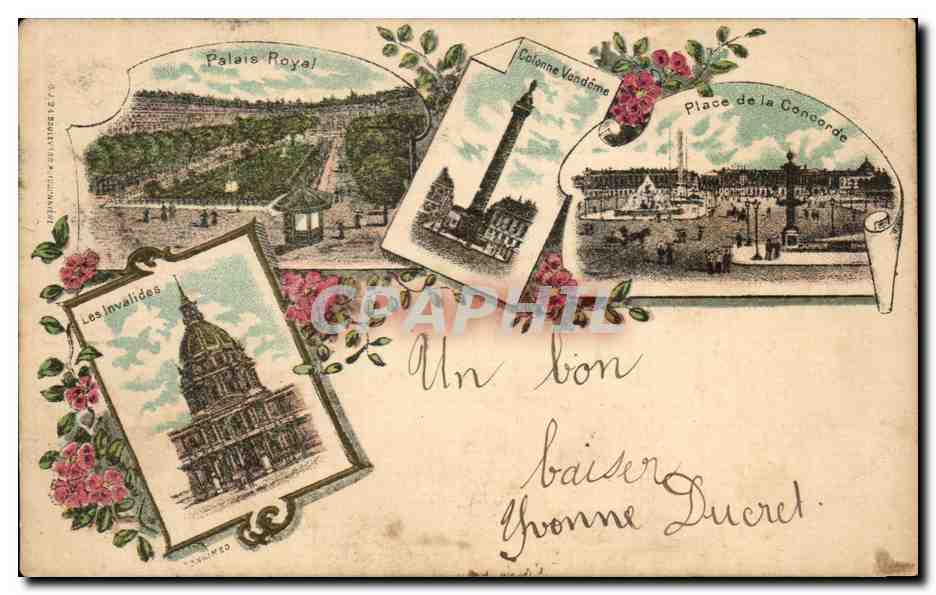 Palais Royal
Colonne Vendôme
Place de la Concorde
Les Invalides
CPAPHIL
Un bon
baiser
Yvonne Ducret.